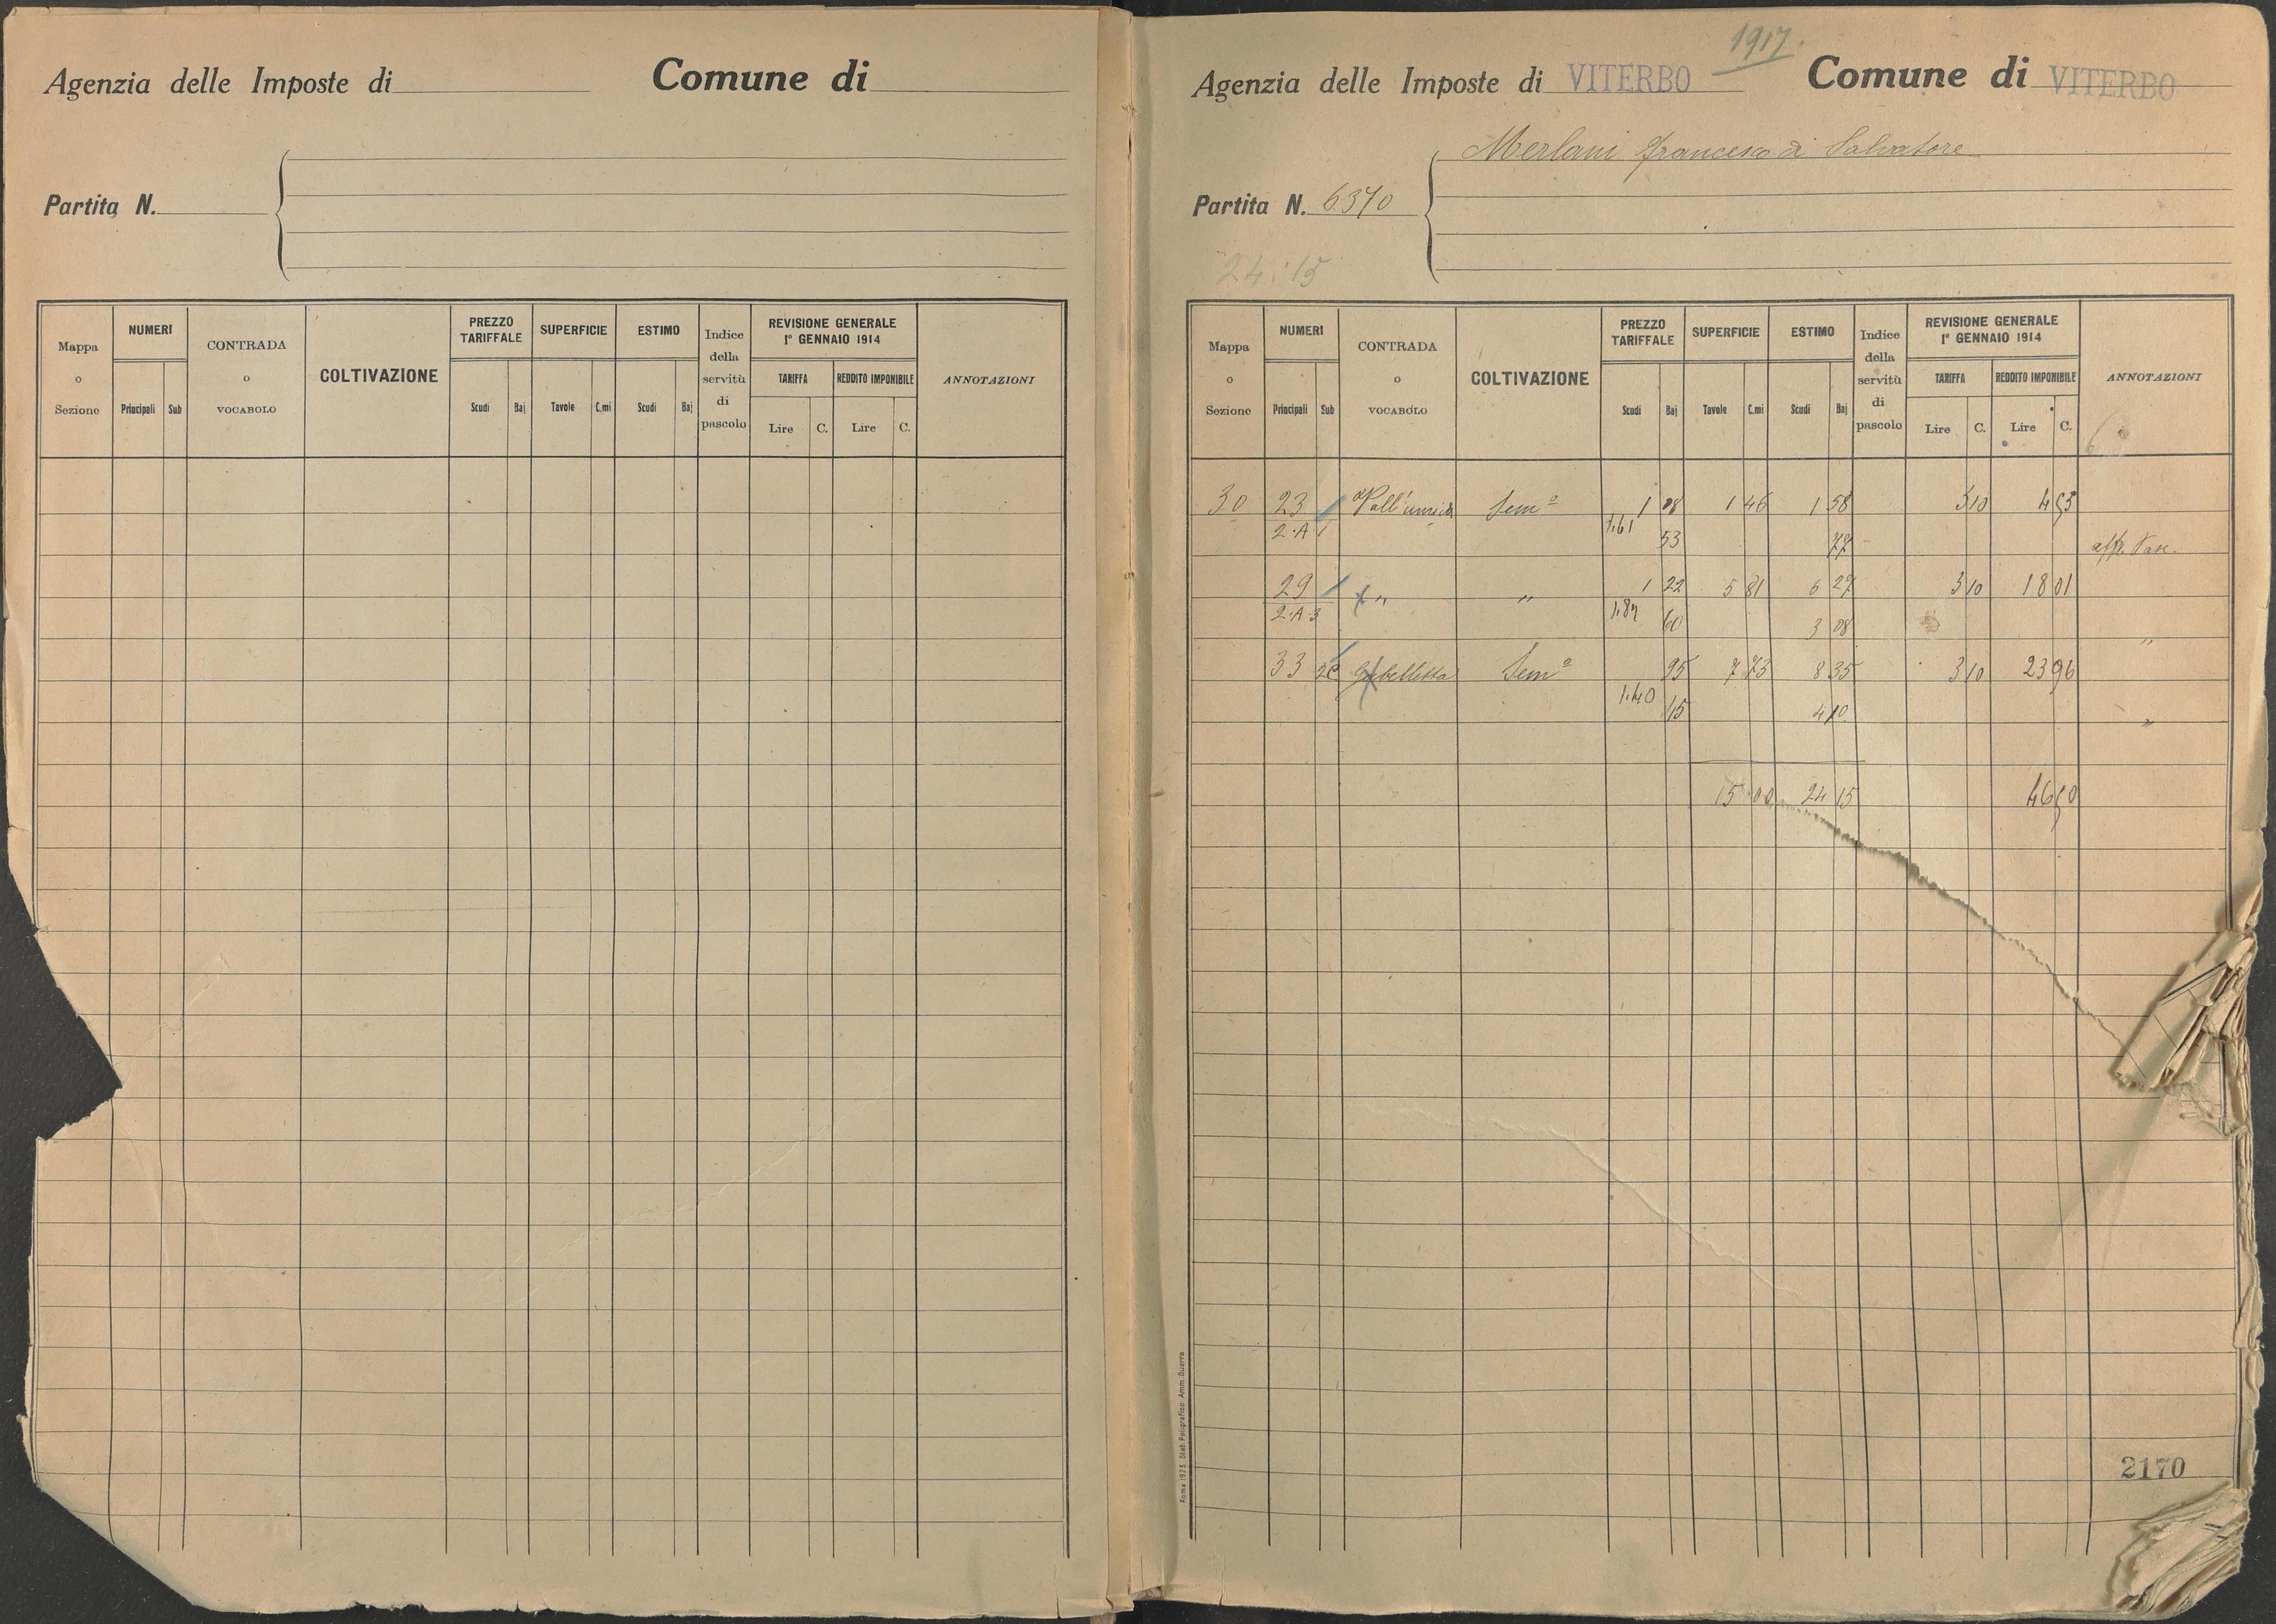 Agenzia delle Imposte di
Comune di
Partita N.
Mappa o Sezione
NUMERI
Principali
Sub
CONTRADA o VOCABOLO
COLTIVAZIONE
PREZZO TARIFFALE
Scudi
Baj
SUPERFICIE
Tavole
C.mi
ESTIMO
Scudi
Baj
Indice della servitù di pascolo
REVISIONE GENERALE
1° GENNAIO 1914
TARIFFA
Lire
C.
REDDITO IMPONIBILE
Lire
C.
ANNOTAZIONI
1917.
Agenzia delle Imposte di VITERBO
Comune di VITERBO
Merlani Francesco di Salvatore
Partita N. 6370
24:15
Mappa o Sezione
NUMERI
Principali
Sub
CONTRADA o VOCABOLO
COLTIVAZIONE
PREZZO TARIFFALE
Scudi
Baj
SUPERFICIE
Tavole
C.mi
ESTIMO
Scudi
Baj
Indice della servitù di pascolo
REVISIONE GENERALE
1° GENNAIO 1914
TARIFFA
Lire
C.
REDDITO IMPONIBILE
Lire
C.
ANNOTAZIONI
30 23 Semº 1 08 1 46 1 58 3 10 4 53
2·A·1 1.61 53 77 aff. Pasc.
29 " " 1 22 5 81 6 27 3 10 18 01
2·A·3 60 3 08 "
33 Gabelletta Semº 95 7 73 8 35 3 10 23 96
1.40 15 4 10 "
15 00 24 15 46 50
2170
Roma 1923. Stab. Poligrafico Amm. Guerra